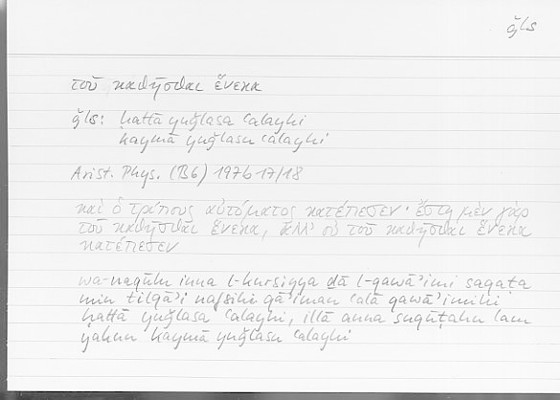 ǧls
τοῦ καθῆσθαι ἕνεκα
ǧls: ḥattā yuǧlasa ʿalayhi
kaymā yuǧlasu ʿalayhi
Arist. Phys. (B6) 197b 17/18
καὶ ὁ τρίπους αὐτόματος κατέπεσεν· ἔστη μὲν γὰρ
τοῦ καθῆσθαι ἕνεκα, ἀλλ' οὐ τοῦ καθῆσθαι ἕνεκα
κατέπεσεν
wa-naqūlu inna l-kursiyya ḏā l-qawāʾimi saqaṭa
min tilqāʾi nafsihī qāʾiman ʿalā qawāʾimihī
ḥattā yuǧlasa ʿalayhi, illā anna suqūṭahu lam
yakun kaymā yuǧlasu ʿalayhi